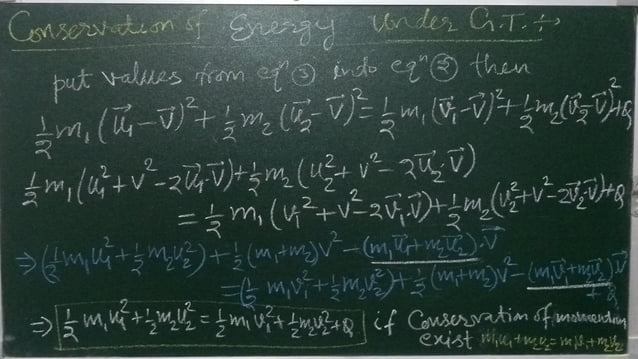 Conservation of Energy Under G.T. :→
put values from eqⁿ ③ into eqⁿ ② then
½m₁(u⃗₁-V⃗)² + ½m₂(u⃗₂-V⃗)² = ½m₁(v⃗₁-V⃗)² + ½m₂(v⃗₂-V⃗)² + Q
½m₁(u₁²+V²-2u⃗₁·V⃗) + ½m₂(u₂²+V²-2u⃗₂·V⃗)
= ½m₁(v₁²+V²-2v⃗₁·V⃗) + ½m₂(v₂²+V²-2v⃗₂·V⃗) + Q
⇒ (½m₁u₁²+½m₂u₂²) + ½(m₁+m₂)V² - (m₁u⃗₁+m₂u⃗₂)·V⃗
= (½m₁v₁²+½m₂v₂²) + ½(m₁+m₂)V² - (m₁v⃗₁+m₂v⃗₂)·V⃗
+ Q
⇒ ½m₁u₁²+½m₂u₂² = ½m₁v₁²+½m₂v₂²+Q if Conservation of momentum
exist m₁u₁+m₂u₂=m₁v₁+m₂v₂